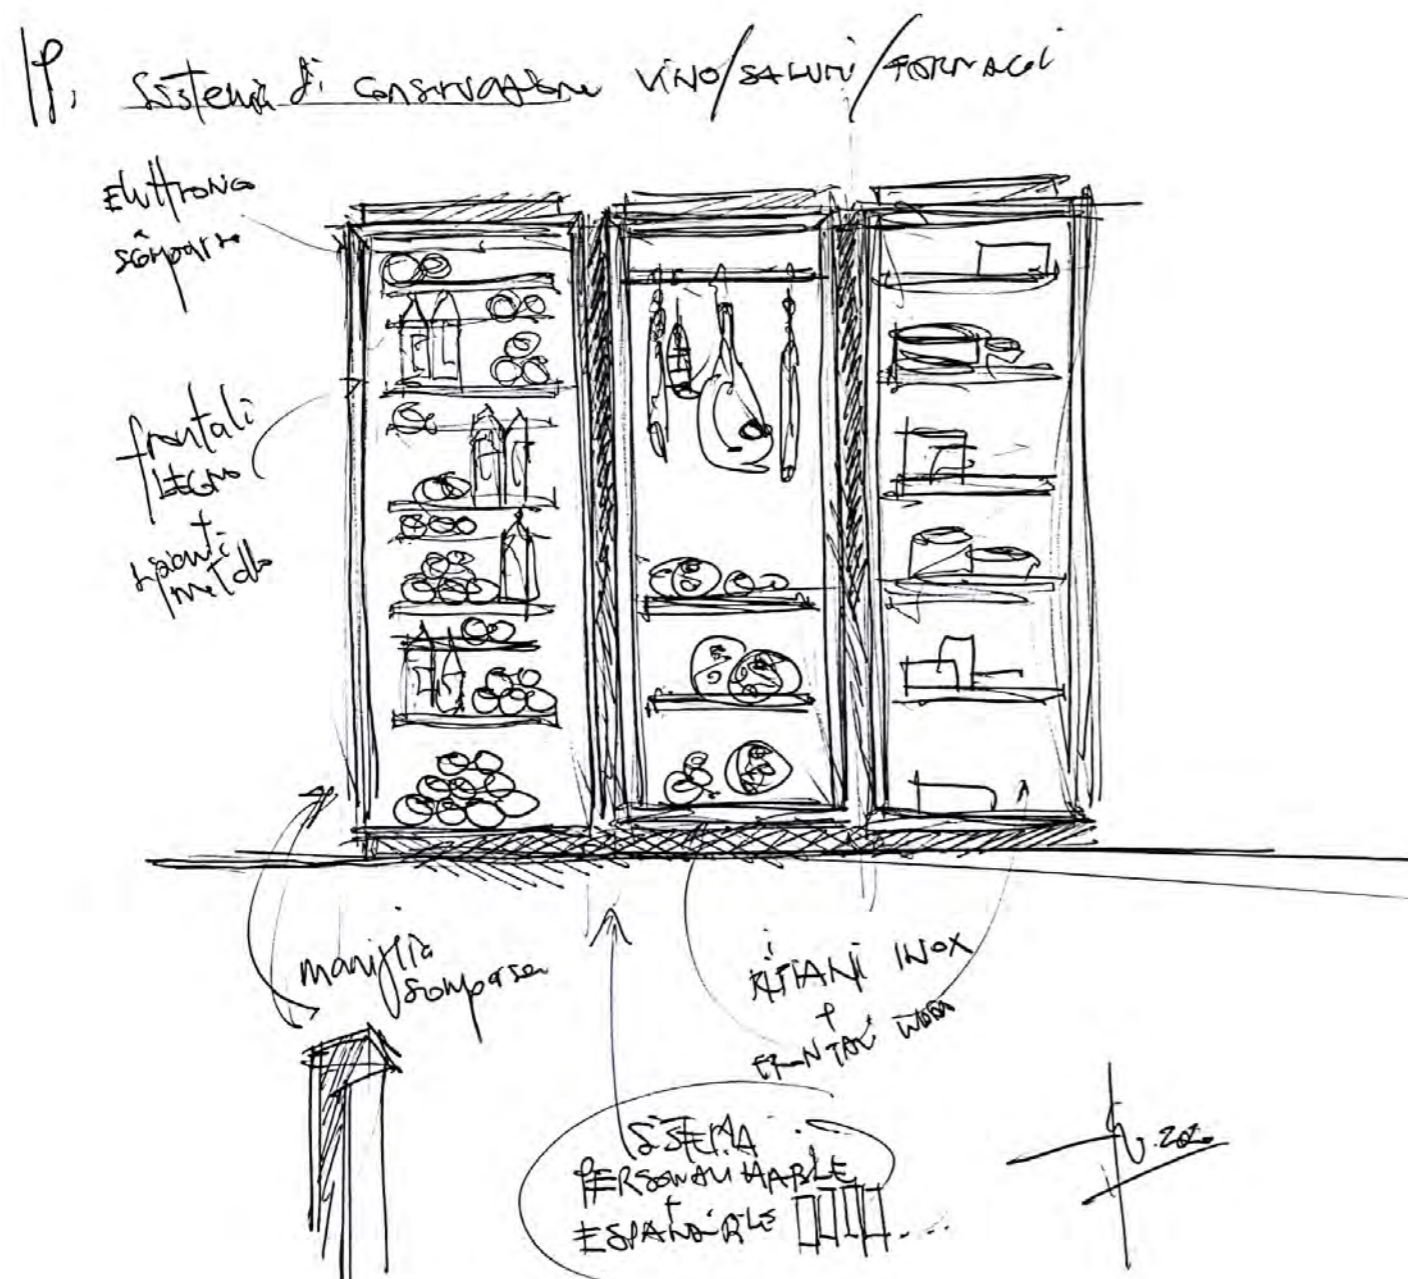 Sistema di conservazione VINO/SALUMI/FORMAGGI
Elettronica
scomparsa
frontali
LEGNO
+
metallo
maniglia
scomparsa
RIPIANI INOX
+
FRONTALI WOOD
SISTEMA
PERSONALIZZABLE
+
ESPANDIBLE ....
2020